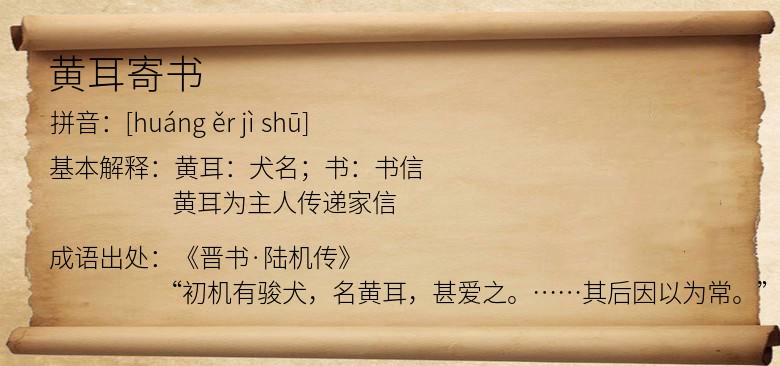 黄耳寄书
拼音：[huáng ěr jì shū]
基本解释：黄耳：犬名；书：书信
黄耳为主人传递家信
成语出处：《晋书·陆机传》
“初机有骏犬，名黄耳，甚爱之。……其后因以为常。”